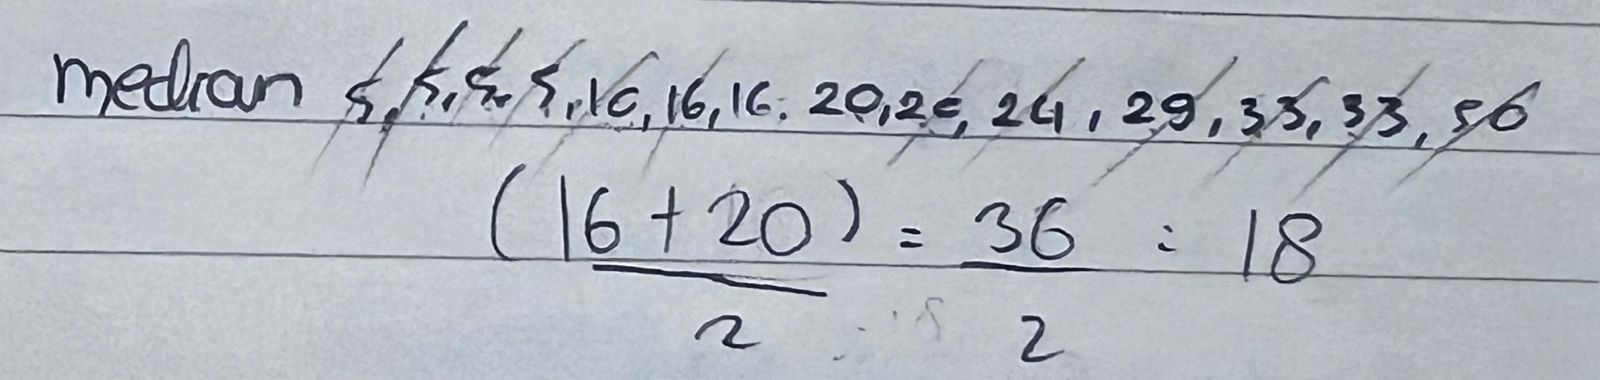 median 5, 5, 5, 5, 16, 16, 16, 20, 20, 24, 29, 33, 33, 56
(16 + 20) = 36 = 18
2 2